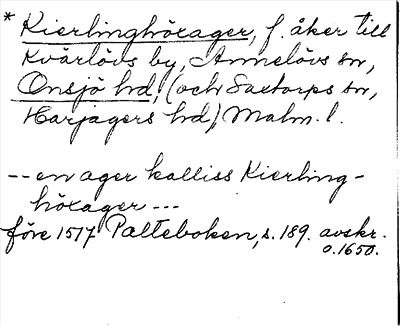 * Kierlinghöxager, f. åker till
Kvärlövs by, Annelövs sn,
Onsjö hd, (och Saxtorps sn,
Harjagers hd,) Malm. l.
-- en ager kalliss Kierling-
höxager ---
före 1517 Palteboken, s. 189. avskr.
o. 1650.